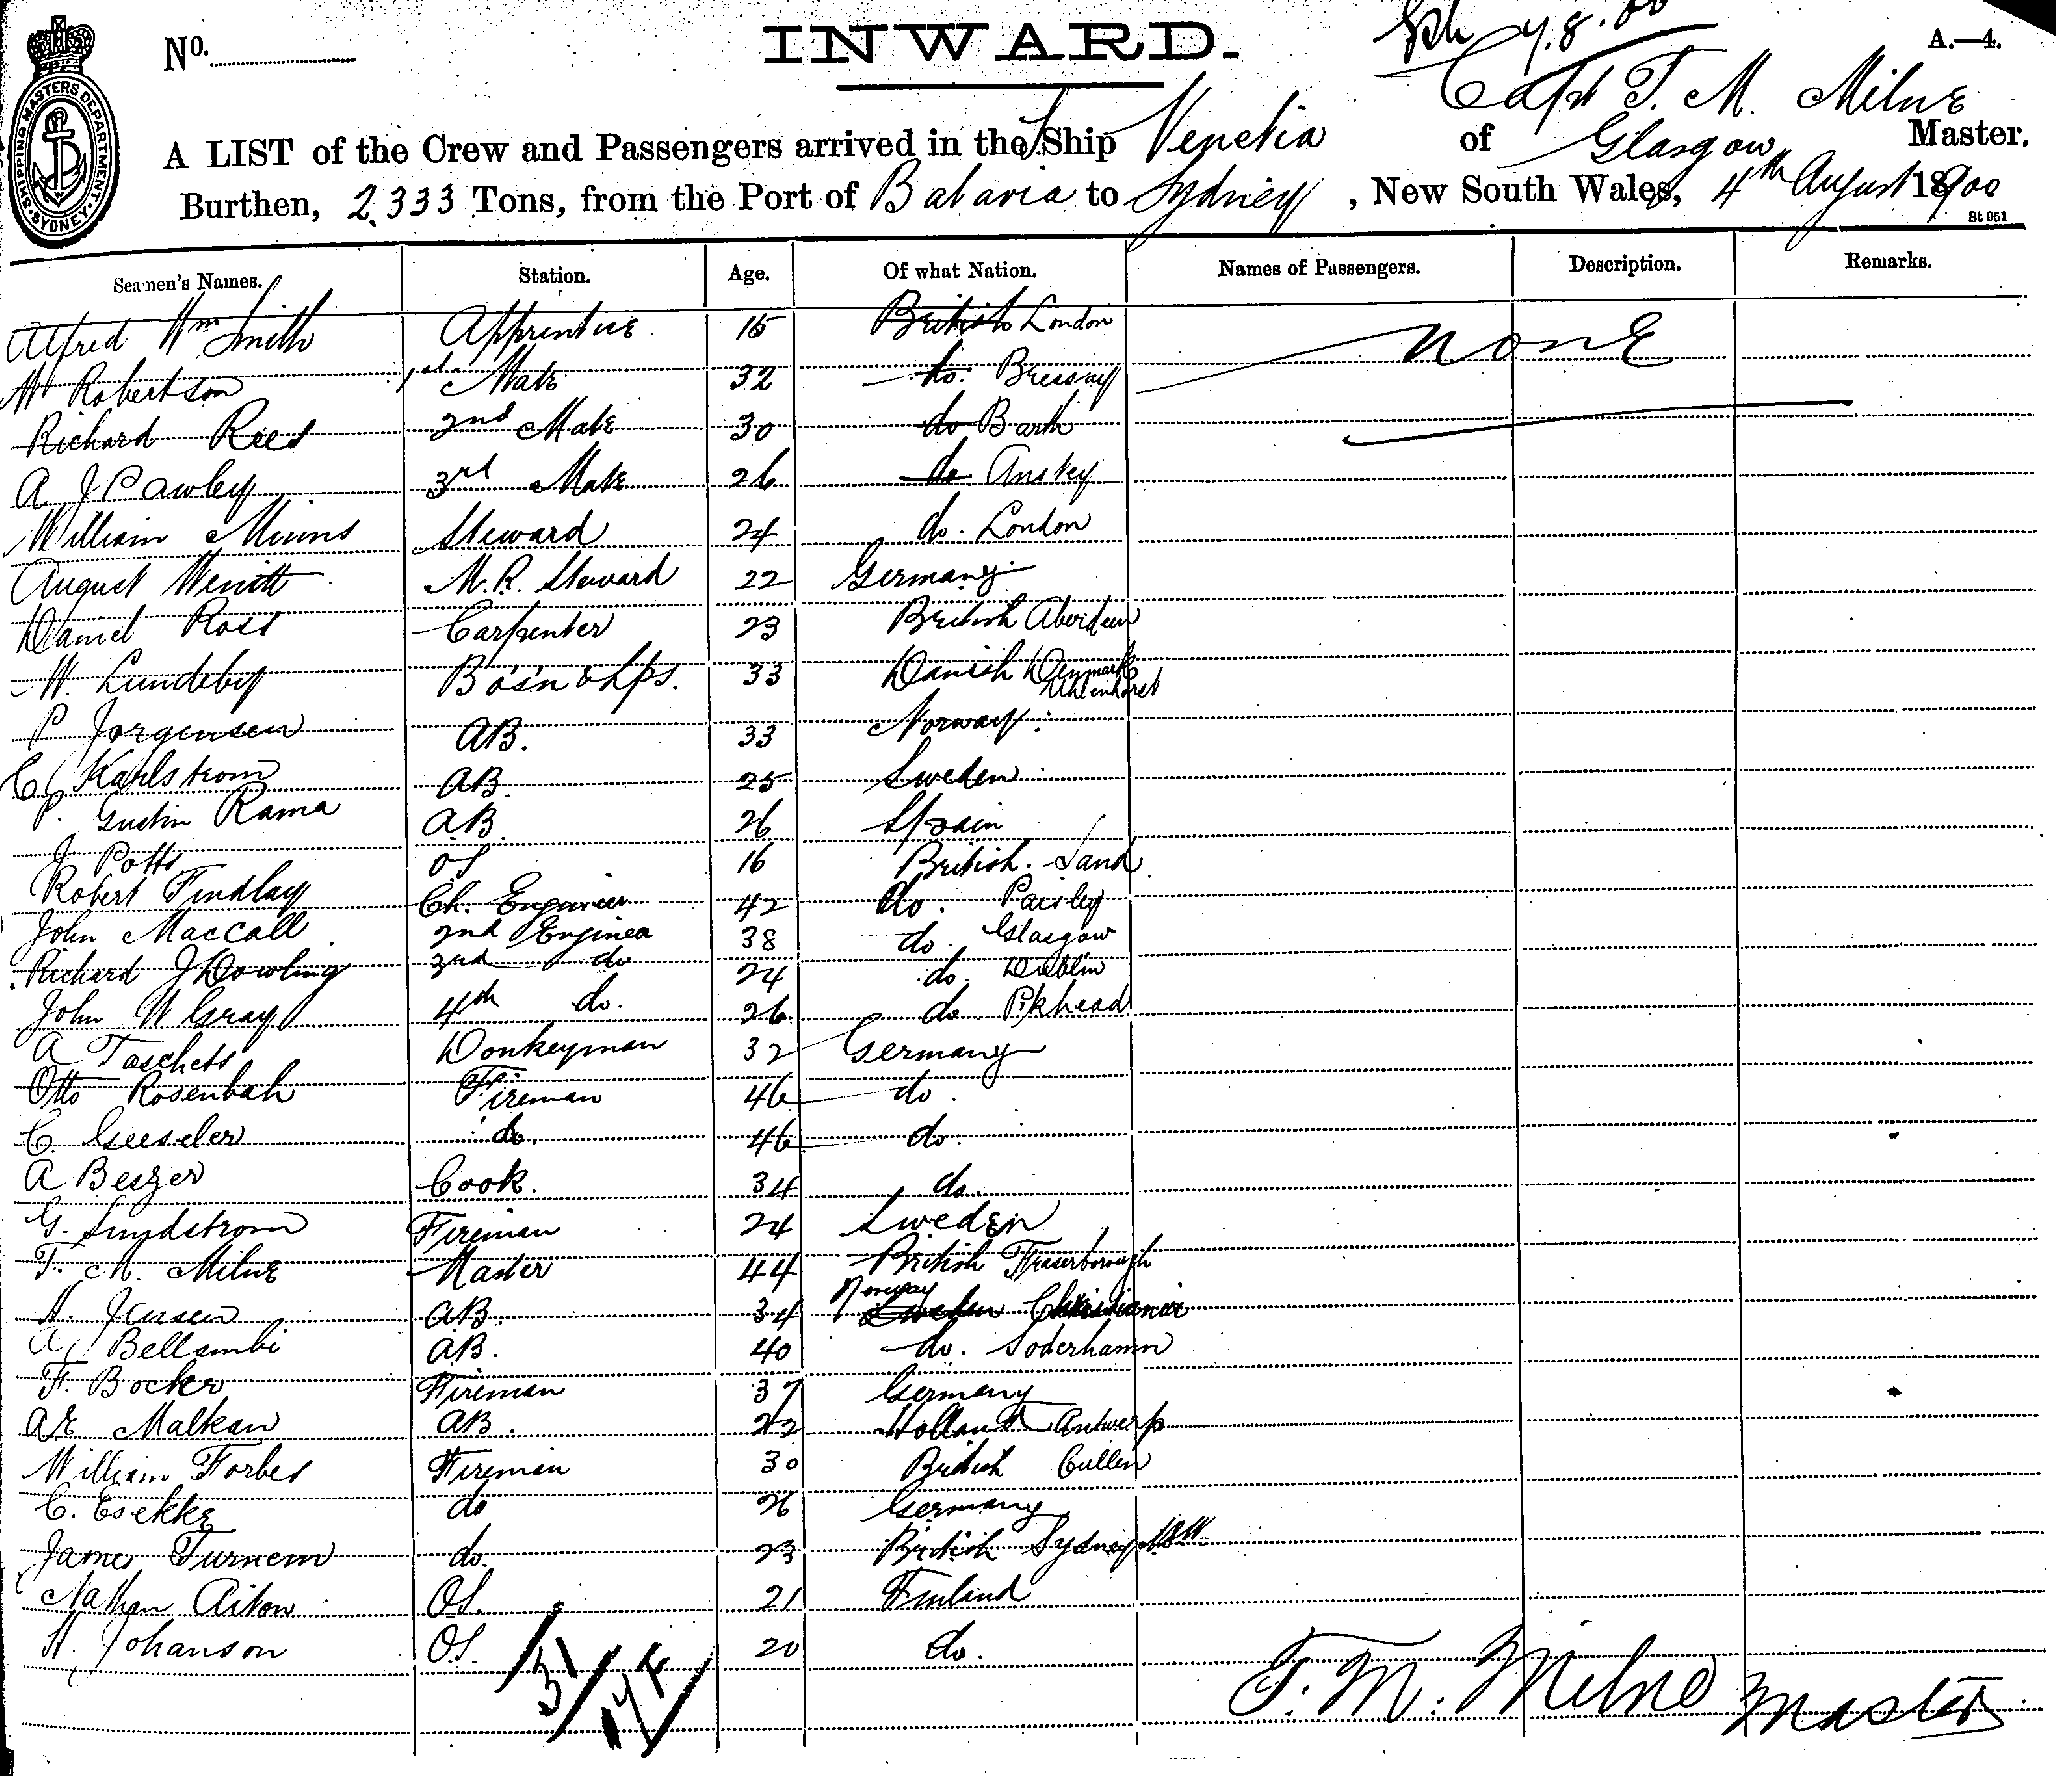 No.
INWARD.
7.8.00
A.—4.
SHIPPING MASTERS DEPARTMENT. SYDNEY
Capt T. M. Milne
A LIST of the Crew and Passengers arrived in the Ship Venetia of Glasgow Master.
Burthen, 2333 Tons, from the Port of Batavia to Sydney, New South Wales, 4th August 1900
St 951
Seamen's Names. Station. Age. Of what Nation. Names of Passengers. Description. Remarks.
Alfred Wm Smith Apprentice 15 British London None
W Robertson 1st Mate 32 do. Bressay
Richard Rees 2nd Mate 30 do Barth
A J Pawley 3rd Mate 26 do Anstey
William Minns Steward 24 do. London
August M.R. Steward 22 Germany
Daniel Ross Carpenter 23 British Aberdeen
W. Lundeby Bo's'n & Lps. 33 Danish Denmark
P Jorgensen AB. 33 Norway
C Karlstrom AB. 25 Sweden
P. Gustin Rama AB. 26 Spain
J Potts OS 16 British.
Robert Findlay Ch. Engineer 42 do. Paisley
John Maccall 2nd Enginea 38 do. Glasgow
Richard J Dowling 3rd do 24 do. Dublin
John W Gray 4th do. 26 do Pkhead
A Taschets Donkeyman 32 Germany
Otto Rosenbah Fireman 46 do
C. Geeseler do. 46 do.
A Beszer Cook. 34 do.
G. Sundstrom Fireman 24 Sweden
T. M. Milne Master 44 British Fraserborough
H. Jensen AB. 34 Norway Sweden Christiania
A Bellambi AB. 40 do. Soderhamn
F. Bocker Fireman 37 Germany
AE Malkan AB. 22 Holland Antwerp
William Forbes Fireman 30 British Cullen
C. Esekke do 26 Germany
James Turnem do. 23 British Sydney NSW
Nathan Aiton OS. 21 Finland
H. Johanson OS. 20 do.
31/
14F
T. M. Milne Master